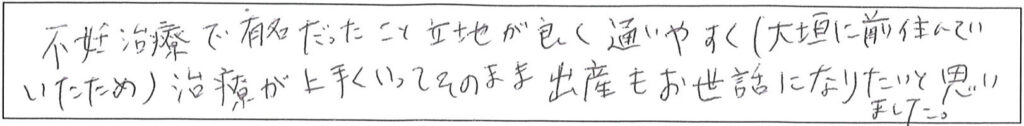 不妊治療で有名だったこと立地が良く通いやすく(大垣に前住んでい
いたため)治療が上手くいってそのまま出産もお世話になりたいと思い
ました。